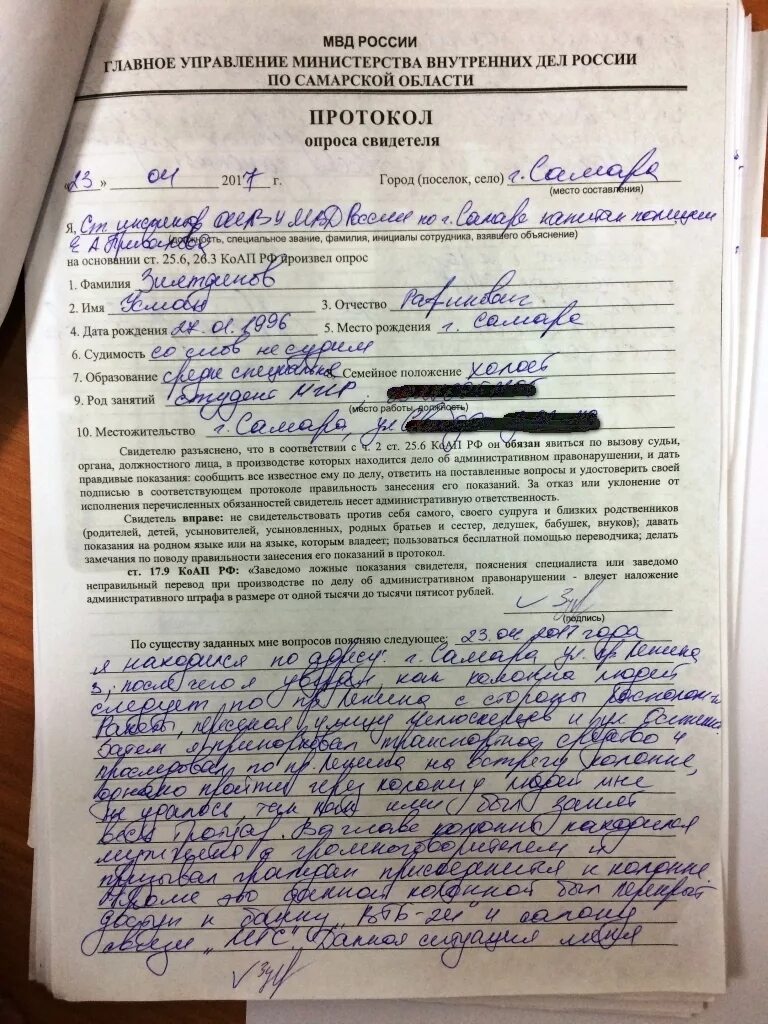 МВД РОССИИ
ГЛАВНОЕ УПРАВЛЕНИЕ МИНИСТЕРСТВА ВНУТРЕННИХ ДЕЛ РОССИИ
ПО САМАРСКОЙ ОБЛАСТИ
ПРОТОКОЛ
опроса свидетеля
«23» 04 2017 г. Город (поселок, село) г. Самара
(место составления)
Я, Ст. инспектор УМВД России по г. Самаре капитан полиции
Е. А.
(должность, специальное звание, фамилия, инициалы сотрудника, взявшего объяснение)
на основании ст. 25.6, 26.3 КоАП РФ произвел опрос
1. Фамилия Зиятдинов
2. Имя Усман 3. Отчество
4. Дата рождения 27.01.1996 5. Место рождения г. Самара
6. Судимость со слов не судим
7. Образование средне специальное 8. Семейное положение холост
9. Род занятий студент МИР
(место работы, должность)
10. Местожительство г. Самара, ул.
Свидетелю разъяснено, что в соответствии с ч. 2 ст. 25.6 КоАП РФ он обязан явиться по вызову судьи,
органа, должностного лица, в производстве которых находится дело об административном правонарушении, и дать
правдивые показания: сообщить все известное ему по делу, ответить на поставленные вопросы и удостоверить своей
подписью в соответствующем протоколе правильность занесения его показаний. За отказ или уклонение от
исполнения перечисленных обязанностей свидетель несет административную ответственность.
Свидетель вправе: не свидетельствовать против себя самого, своего супруга и близких родственников
(родителей, детей, усыновителей, усыновленных, родных братьев и сестер, дедушек, бабушек, внуков); давать
показания на родном языке или на языке, которым владеет; пользоваться бесплатной помощью переводчика; делать
замечания по поводу правильности занесения его показаний в протокол.
ст. 17.9 КоАП РФ: «Заведомо ложные показания свидетеля, пояснения специалиста или заведомо
неправильный перевод при производстве по делу об административном правонарушении - влечет наложение
административного штрафа в размере от одной тысячи до тысячи пятисот рублей.
(подпись)
По существу заданных мне вопросов поясняю следующее: 23.04.2017 года
я находился по адресу: г. Самара, ул. пр. Ленина
3, после чего я увидел, как колонна людей
следует по пр. Ленина с стороны
Ракеты, пересекая улицу Челюскинцев и ул. Осипенко.
Затем я припарковал транспортное средство и
проследовал по пр. Ленина на встречу колонне,
однако пройти через колонну людей мне
не удалось, так как ими был занят
весь тротуар. Во главе колонны находился
мужчина с громкоговорителем и
призывал граждан присоединится к колонне.
Кроме это данной колонной был перекрыт
доступ к банку "ВТБ-24" и салону
связи "МТС". Данная ситуация меня